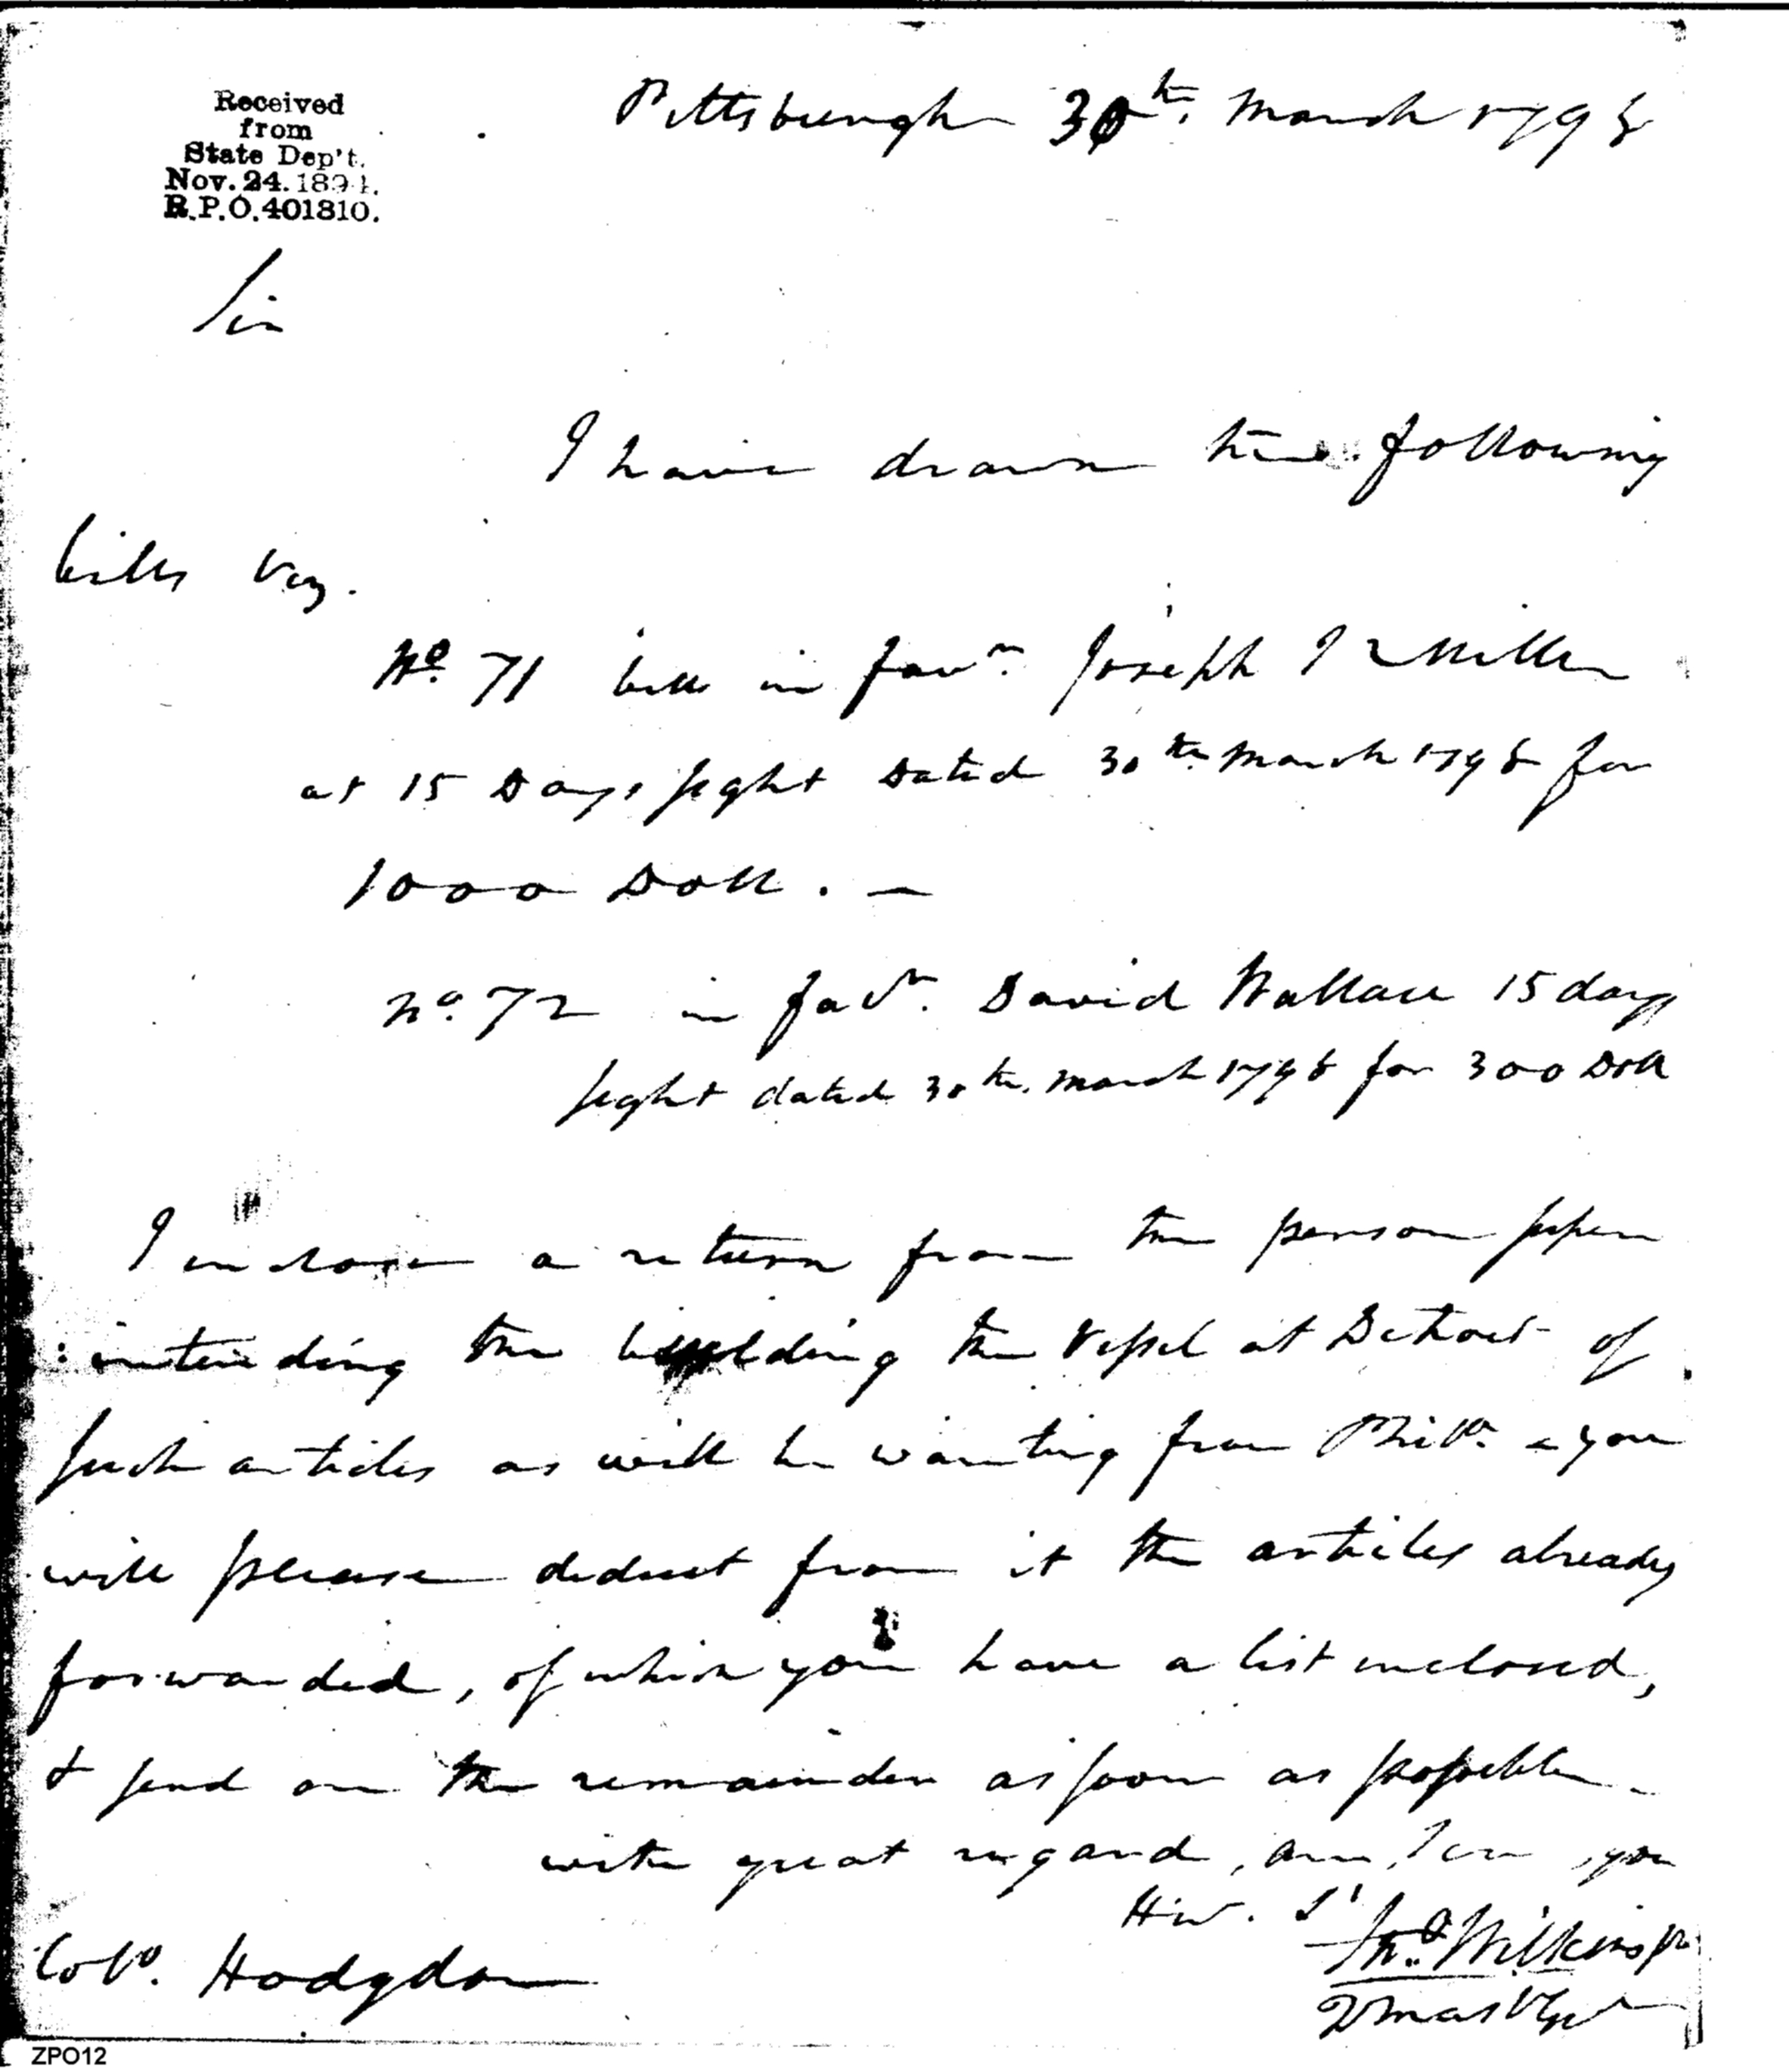 Received
from
State Dep't.
Nov. 24. 1894.
R.P.O. 401810.
Pittsburgh 30th. March 1798
Sir
I have drawn the following
bills viz.
No. 71 bill in favr. Joseph Miller
at 15 Days sight Dated 30th March 1798 for
1000 Doll. —
No. 72 in favr. David Wallace 15 days
sight dated 30th. March 1798 for 300 Doll
I inclose a return from the person super
: intending the building the Vessel at Detroit of
such articles as will be wanting from Phila. & you
will please deduct from it the articles already
forwarded, of which you have a list inclosed,
& send on the remainder as soon as possible -
with great regard, I am, your
Hb
Jno. Wilkins jr
QmastGen
Colo. Hodgdon
ZPO12